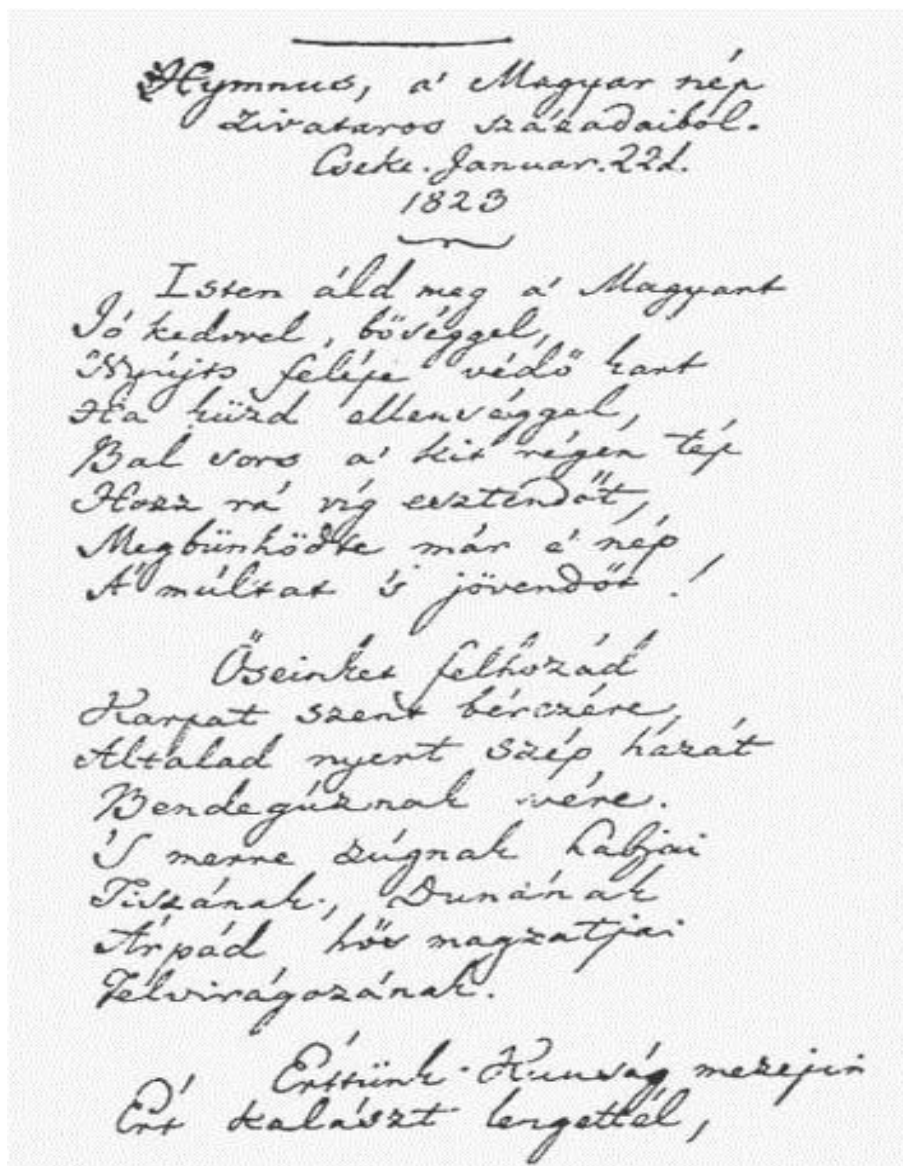 Hymnus, a' Magyar nép
zivataros századaiból.
Cseke. Januar. 22d.
1823
Isten áld meg a' Magyart
Jó kedvvel, bőséggel,
Nyújts feléje védő kart
Ha küzd ellenséggel,
Bal sors a' kit régen tép
Hozz rá víg esztendőt,
Megbünhődte már e' nép
A' múltat 's jövendőt!
Őseinket felhozád
Karpat szent bérczére,
Altalad nyert szép házát
Bendegúznak vére.
'S merre zúgnak habjai
Tiszának, Dunának
Árpád hős magzatjai
Félvirágozának.
Érttünk Kunság mezejin
Ért kalászt lengettél,